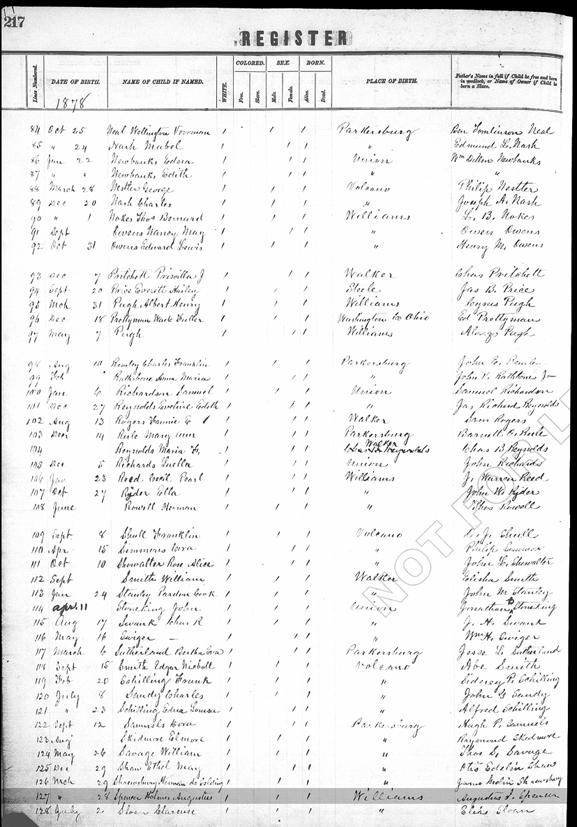 217
REGISTER
Lines Numbered. DATE OF BIRTH. NAME OF CHILD IF NAMED. WHITE. COLORED. Free. Slave. SEX. Male. Female. BORN. Alive. Dead. PLACE OF BIRTH. Father's Name in full if Child be free and born in wedlock, or Name of Owner if Child be born a Slave.
1878
84 Oct 25 Neal Wellington Vrooman Parkersburg Ben Tomlinson Neal
85 " 24 Nash Mabel " Edmund L. Nash
86 Jan 22 Newbanks Edna Union Wm Newbanks
87 " " Newbanks Edith " "
88 March 28 George Volcano Philip
89 Dec 20 Nash Charles " Joseph A. Nash
90 " 1 Nokes Thos Bernard Williams L. B. Nokes
91 Sept Owens Nancy May " Owen Owens
92 Oct 31 Owens Edward Lewis " Henry M. Owens
93 Dec 7 Pritchett Priscilla J Walker Chas Pritchett
94 Sept 20 Price Everett Steele Jas B. Price
95 Mch 31 Pugh Albert Henry Williams Cyrus Pugh
96 Dec 18 Prettyman Wade Fuller Washington Co Ohio Ed Prettyman
97 May 7 Pugh Williams Alonzo Pugh
98 Aug 10 Charles Franklin Parkersburg John C.
99 Feb Rathbone Anna Maria " John V. Rathbone Jr
100 Jan 6 Richardson Samuel Union Samuel Richardson
101 Dec 27 Reynolds Edith " Jas Richard Reynolds
102 Aug 13 Rogers Fannie E Walker Sam Rogers
103 Dec 14 Rule Mary Ann Parkersburg Barnett Rule
104 Reynolds Maria Walker Chas B. Reynolds
105 Dec 5 Richards Luella Union John Richards
106 Jan 23 Reed Pearl Williams J. Warren Reed
107 Oct 27 Ryder Etta " John W. Ryder
108 June Rowell Herman " Rowell
109 Sept 8 Shull Franklin Volcano D. J. Shull
110 Apr 15 Simmons Cora " Philip Simmons
111 Oct 10 Showalter Rose Alice " John Showalter
112 Sept Smith William Walker Elisha Smith
113 Jan 24 Stanley Pardon Cook " John M. Stanley
114 apr. 11 Stoneking John Union Jonathan Stoneking
115 Aug 17 Swank John R " J. H. Swank
116 May 16 Swiger — " Wm H. Swiger
117 March 6 Sutherland Bertha Cora Parkersburg Jesse L. Sutherland
118 Sept 15 Smith Edgar Volcano Abe Smith
119 Feb 20 Schilling Frank " Sidney P. Schilling
120 July 8 Sandy Charles " John G Sandy
121 " 23 Schilling Edna Louise " Alfred Schilling
122 Sept 12 Samuels Cora Parkersburg Hugh P. Samuels
123 Aug Skidmore Elmore " Raymond Skidmore
124 May 26 Savage William " Thos G. Savage
125 Dec 29 Shaw Ethel May " Otis Edelin Shaw
126 Mch 29 Shrewsbury Herman de Golding " James Shrewsbury
127 " 28 Spencer Holmes Augustus Williams Augustus I. Spencer
128 July 2 Sloan Clarence " Elias Sloan
NOT FOR